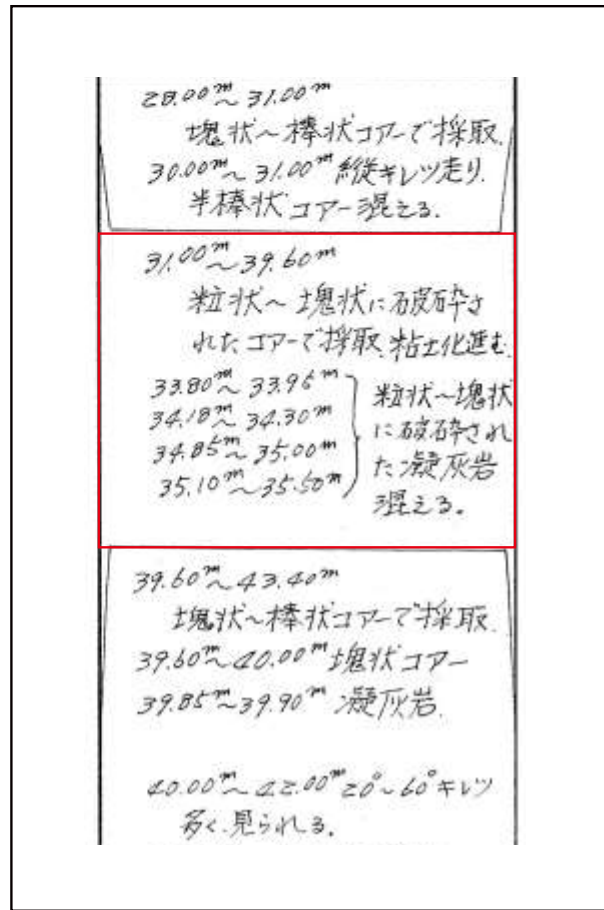 28.00m～31.00m
塊状～棒状コアーで採取.
30.00m～31.00m 縦キレツ走り.
半棒状コアー混える.
31.00m～39.60m
粒状～塊状に破砕さ
れたコアーで採取.粘土化進む.
33.80m～33.95m
34.18m～34.30m
34.85m～35.00m
35.10m～35.50m
粒状～塊状
に破砕され
た凝灰岩
混える。
39.60m～43.40m
塊状～棒状コアーで採取.
39.60m～40.00m 塊状コアー
39.85m～39.90m 凝灰岩.
40.00m～42.00m 20°～60°キレツ
多く見られる.